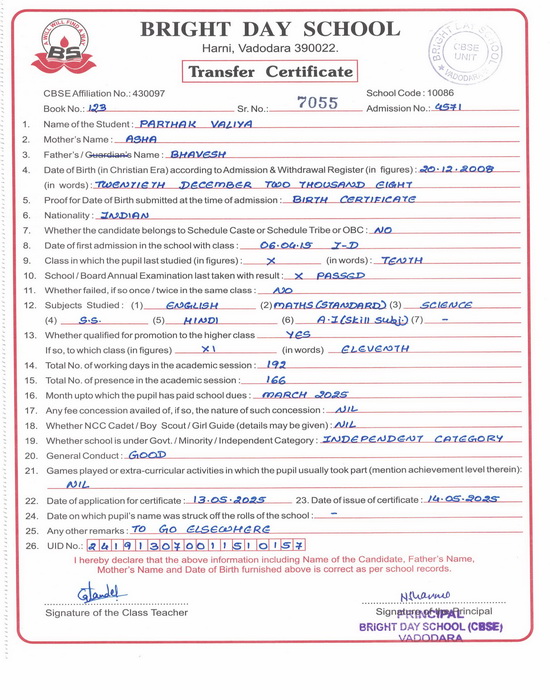 A WILL WILL FIND A WAY
BS
BRIGHT DAY SCHOOL
Harni, Vadodara 390022.
Transfer Certificate
BRIGHT DAY SCHOOL
CBSE
UNIT
VADODARA
CBSE Affiliation No.: 430097 School Code : 10086
Book No.: 123 Sr. No.: 7055 Admission No.: 4571
1. Name of the Student : PARTHAK VALIYA
2. Mother's Name : ASHA
3. Father's / Guardian's Name : BHAVESH
4. Date of Birth (in Christian Era) according to Admission & Withdrawal Register (in figures) : 20.12.2008
(in words) : TWENTIETH DECEMBER TWO THOUSAND EIGHT
5. Proof for Date of Birth submitted at the time of admission : BIRTH CERTIFICATE
6. Nationality : INDIAN
7. Whether the candidate belongs to Schedule Caste or Schedule Tribe or OBC : NO
8. Date of first admission in the school with class : 06.04.15 I-D
9. Class in which the pupil last studied (in figures) : X (in words) : TENTH
10. School / Board Annual Examination last taken with result : X PASSED
11. Whether failed, if so once / twice in the same class : NO
12. Subjects Studied : (1) ENGLISH (2) MATHS (STANDARD) (3) SCIENCE
(4) S.S. (5) HINDI (6) A.I (Skill Subj.) (7) -
13. Whether qualified for promotion to the higher class YES
If so, to which class (in figures) XI (in words) ELEVENTH
14. Total No. of working days in the academic session : 192
15. Total No. of presence in the academic session : 166
16. Month upto which the pupil has paid school dues : MARCH 2025
17. Any fee concession availed of, if so, the nature of such concession : NIL
18. Whether NCC Cadet / Boy Scout / Girl Guide (details may be given) : NIL
19. Whether school is under Govt. / Minority / Independent Category : INDEPENDENT CATEGORY
20. General Conduct : GOOD
21. Games played or extra-curricular activities in which the pupil usually took part (mention achievement level therein) :
NIL
22. Date of application for certificate : 13.05.2025 23. Date of issue of certificate : 14.05.2025
24. Date on which pupil's name was struck off the rolls of the school : -
25. Any other remarks : TO GO ELSEWHERE
26. UID No.: 241913070011510157
I hereby declare that the above information including Name of the Candidate, Father's Name,
Mother's Name and Date of Birth furnished above is correct as per school records.
Signature of the Class Teacher Signature of the Principal
PRINCIPAL
BRIGHT DAY SCHOOL (CBSE)
VADODARA